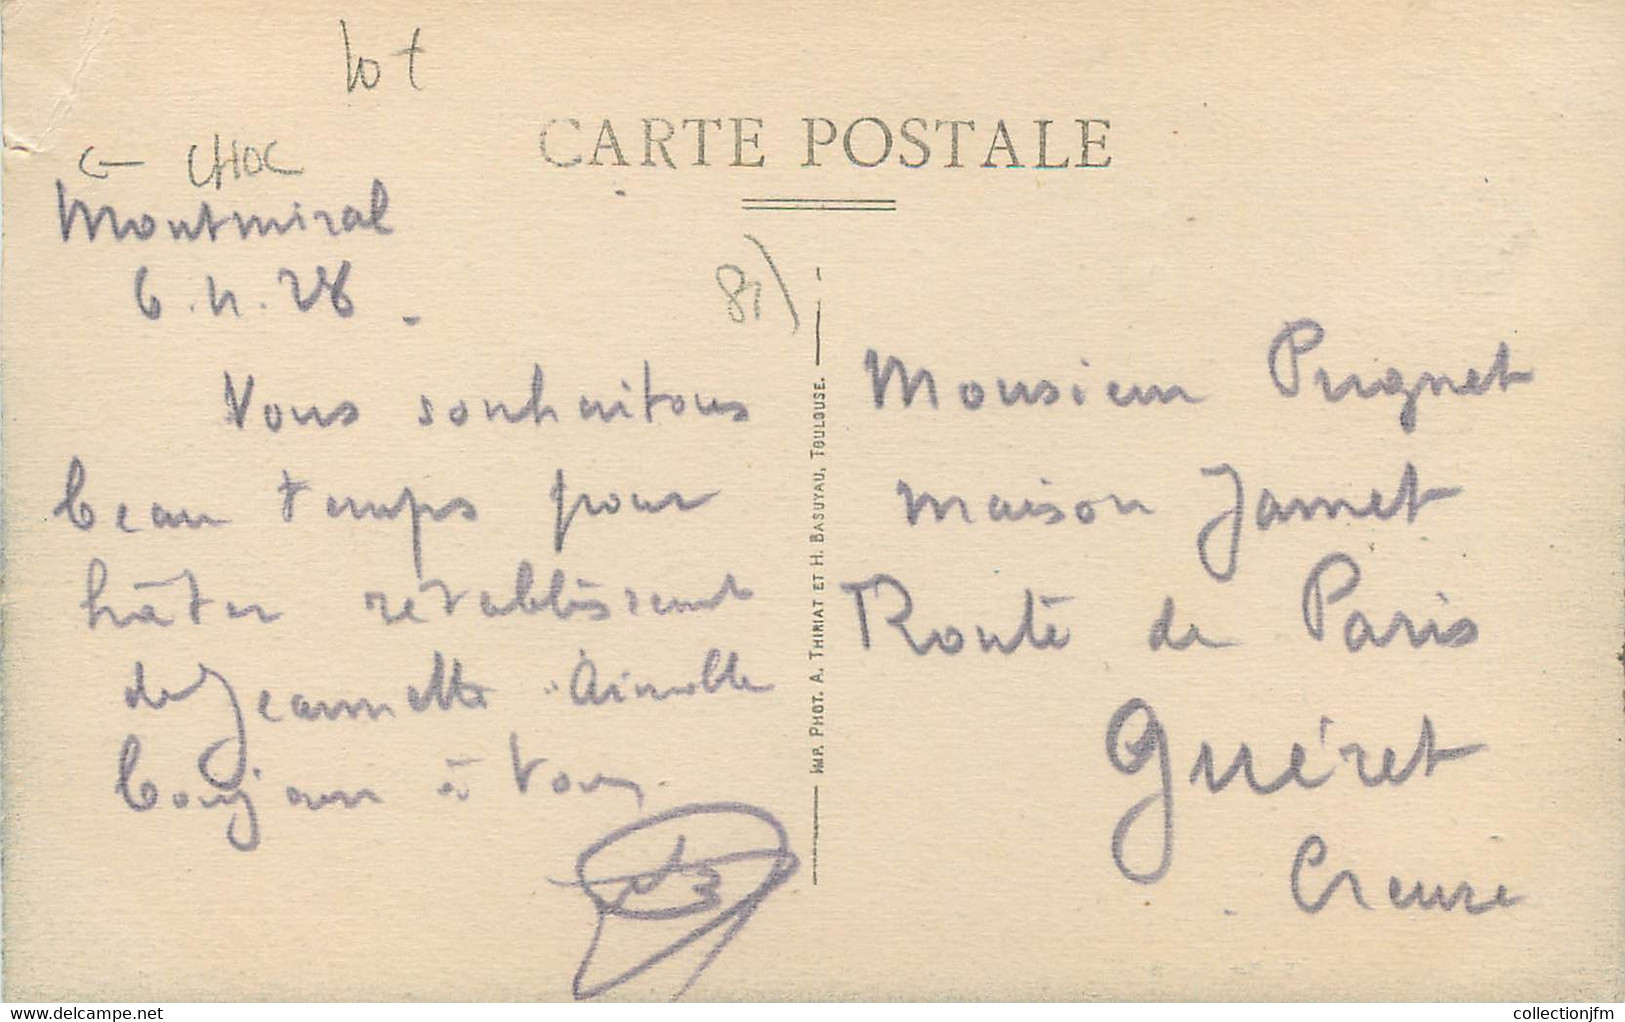 lot
CARTE POSTALE
← CHOC
Montmiral
6.11.28.
81)
Vous souhaitons
beau temps pour
hâter retablissement
de Jeannette
bonjour à tous.
IMP. PHOT. A. THIRIAT ET H. BASUYAU, TOULOUSE.
Monsieur Pugnet
maison Jamet
Route de Paris
Guéret
Creuse
www.delcampe.net
collectionjfm